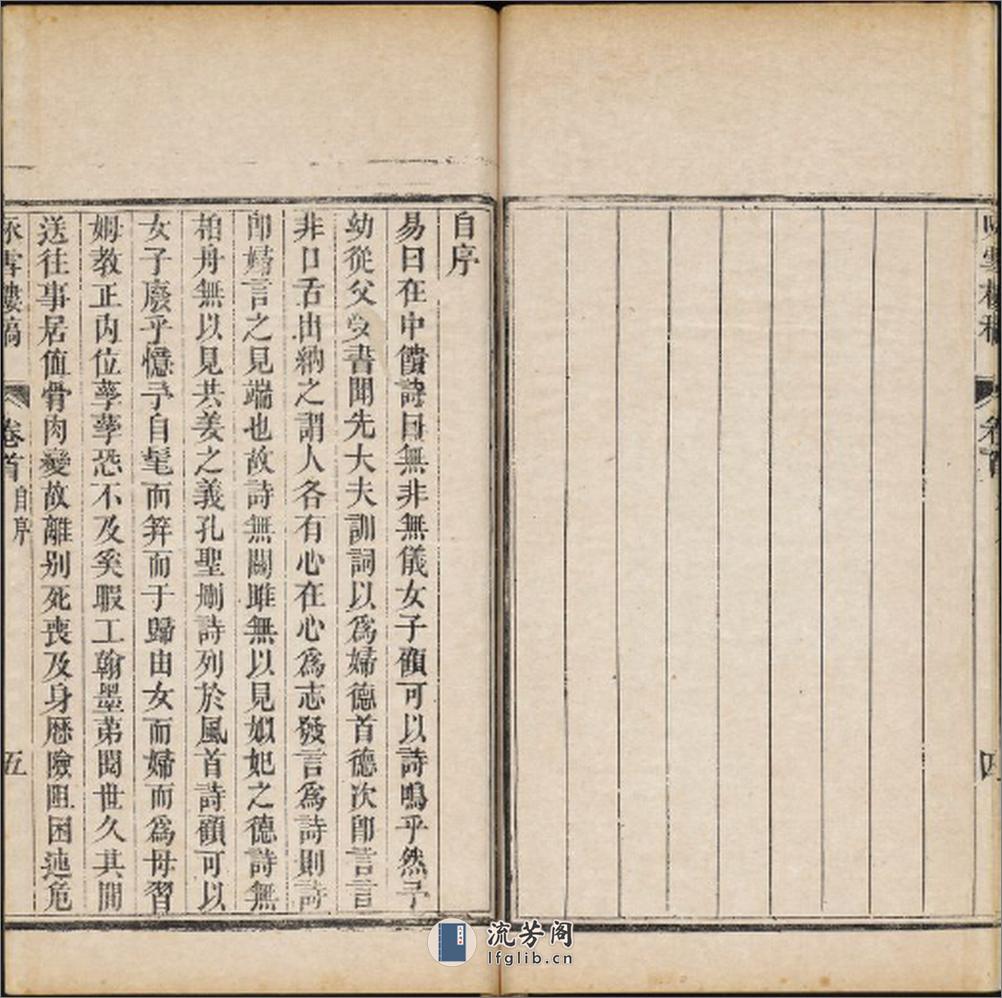 自序
易曰在中饋詩曰無非無儀女子顧可以詩鳴乎然予
幼從父受書聞先大夫訓詞以爲婦德首德次卽言言
非口舌出納之謂人各有心在心爲志發言爲詩則詩
卽婦言之見端也故詩無關雎無以見姒妃之德詩無
柏舟無以見共姜之義孔聖刪詩列於風首詩顧可以
女子廢乎憶予自髦而笄而于歸由女而婦而爲母習
姆教正内位孳孳恐不及奚暇工翰墨苐閱世久其間
送往事居値骨肉變故離别死喪及身歷險阻困迍危
雪樓稿
卷首
自序
五
雪樓稿
卷首
四
流芳阁
lfglib.cn